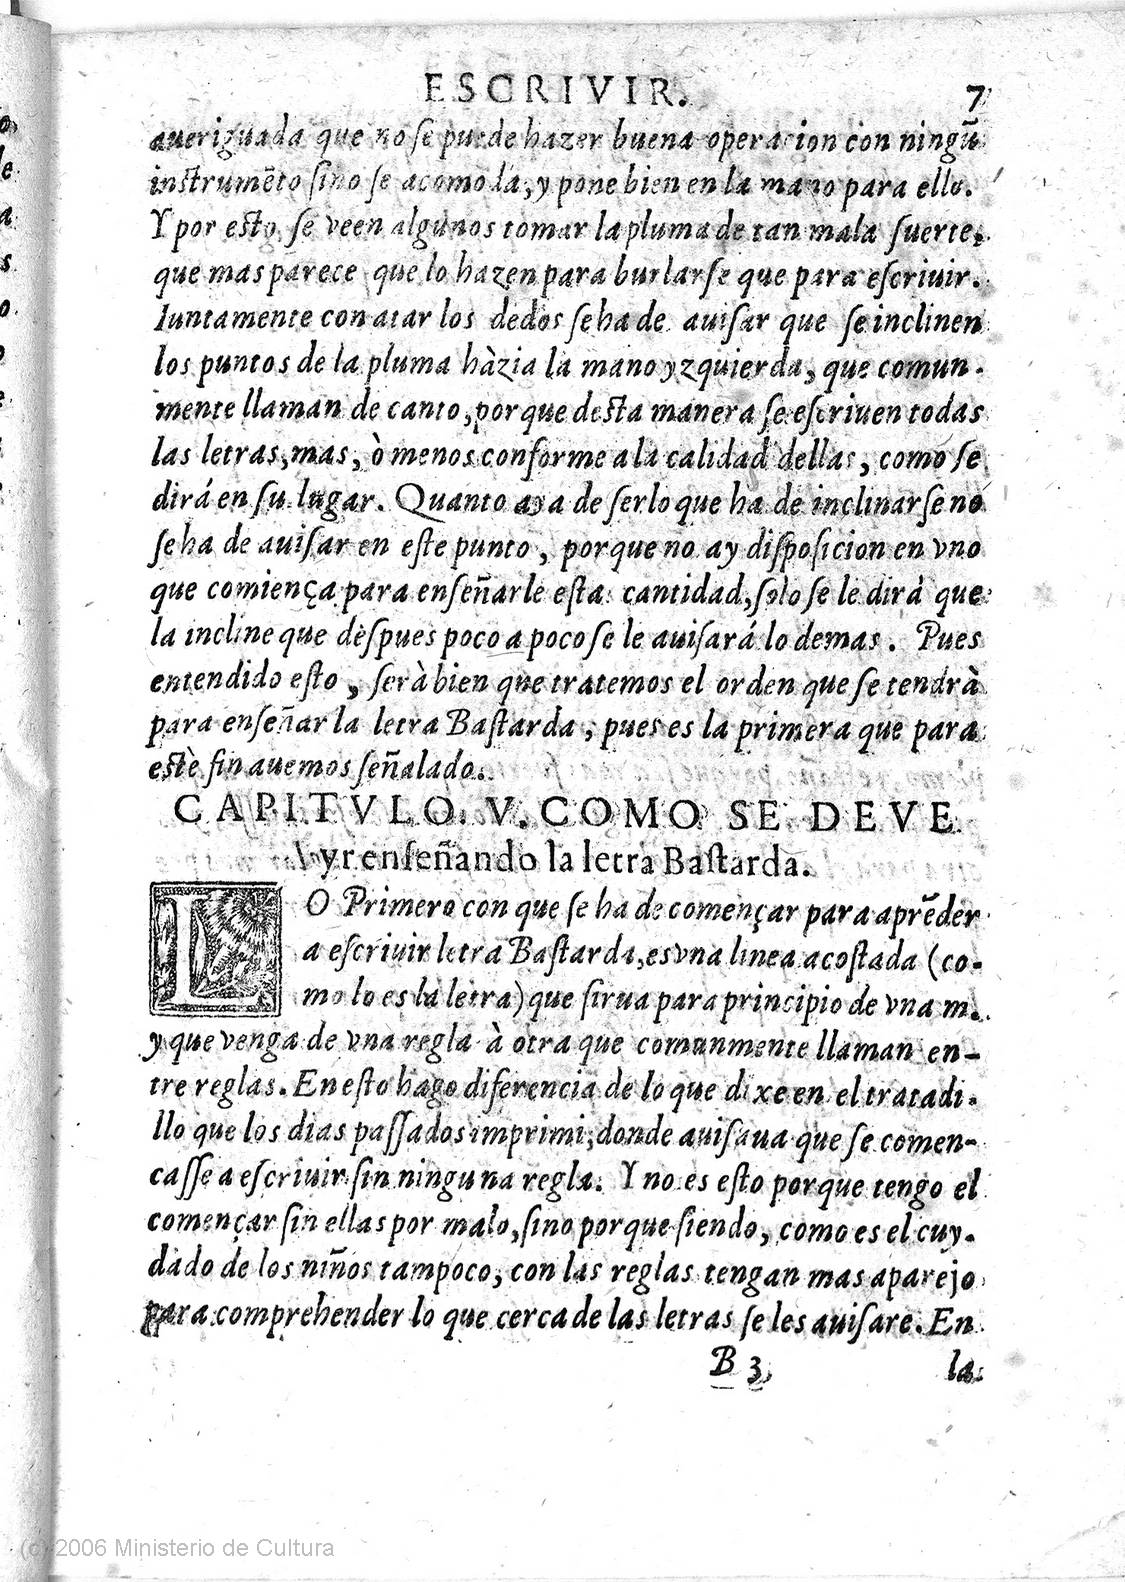 ESCRIVIR. 7
aueriguada que no se puede hazer buena operacion con ningũ
instrumẽto sino se acomoda, y pone bien en la mano para ello.
Y por esto se veen algunos tomar la pluma de tan mala suerte,
que mas parece que lo hazen para burlarse que para escriuir.
Iuntamente con atar los dedos se ha de auisar que se inclinen
los puntos de la pluma hàzia la mano yzquierda, que comun-
mente llaman de canto, porque desta manera se escriuen todas
las letras, mas, ò menos conforme a la calidad dellas, como se
dirá en su lugar. Quanto aya de ser lo que ha de inclinarse no
se ha de auisar en este punto, porque no ay disposicion en vno
que comiença para enseñarle esta cantidad, solo se le dirá que
la incline que despues poco a poco se le auisará lo demas. Pues
entendido esto, serà bien que tratemos el orden que se tendrà
para enseñar la letra Bastarda, pues es la primera que para
estè fin auemos señalado.
CAPITVLO. V. COMO SE DEVE
yr enseñando la letra Bastarda.
LO Primero con que se ha de començar para aprẽder
a escriuir letra Bastarda, es vna linea acostada (co-
mo lo es la letra) que sirua para principio de vna m.
y que venga de vna regla à otra que comunmente llaman en-
tre reglas. En esto hago diferencia de lo que dixe en el tratadi-
llo que los dias passados imprimi, donde auisaua que se comen-
casse a escriuir sin ninguna regla. Y no es esto porque tengo el
començar sin ellas por malo, sino porque siendo, como es el cuy-
dado de los niños tampoco, con las reglas tengan mas aparejo
para comprehender lo que cerca de las letras se les auisare. En
B 3 la
(c) 2006 Ministerio de Cultura